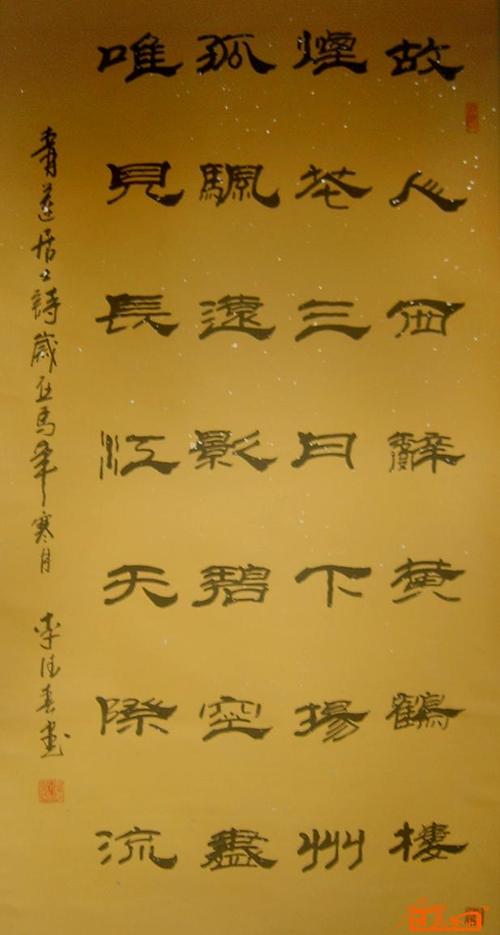 故人西辭黃鶴樓
煙花三月下揚州
孤颿遠影碧空盡
唯見長江天際流
青蓮居士詩歲在馬年寒月
李書